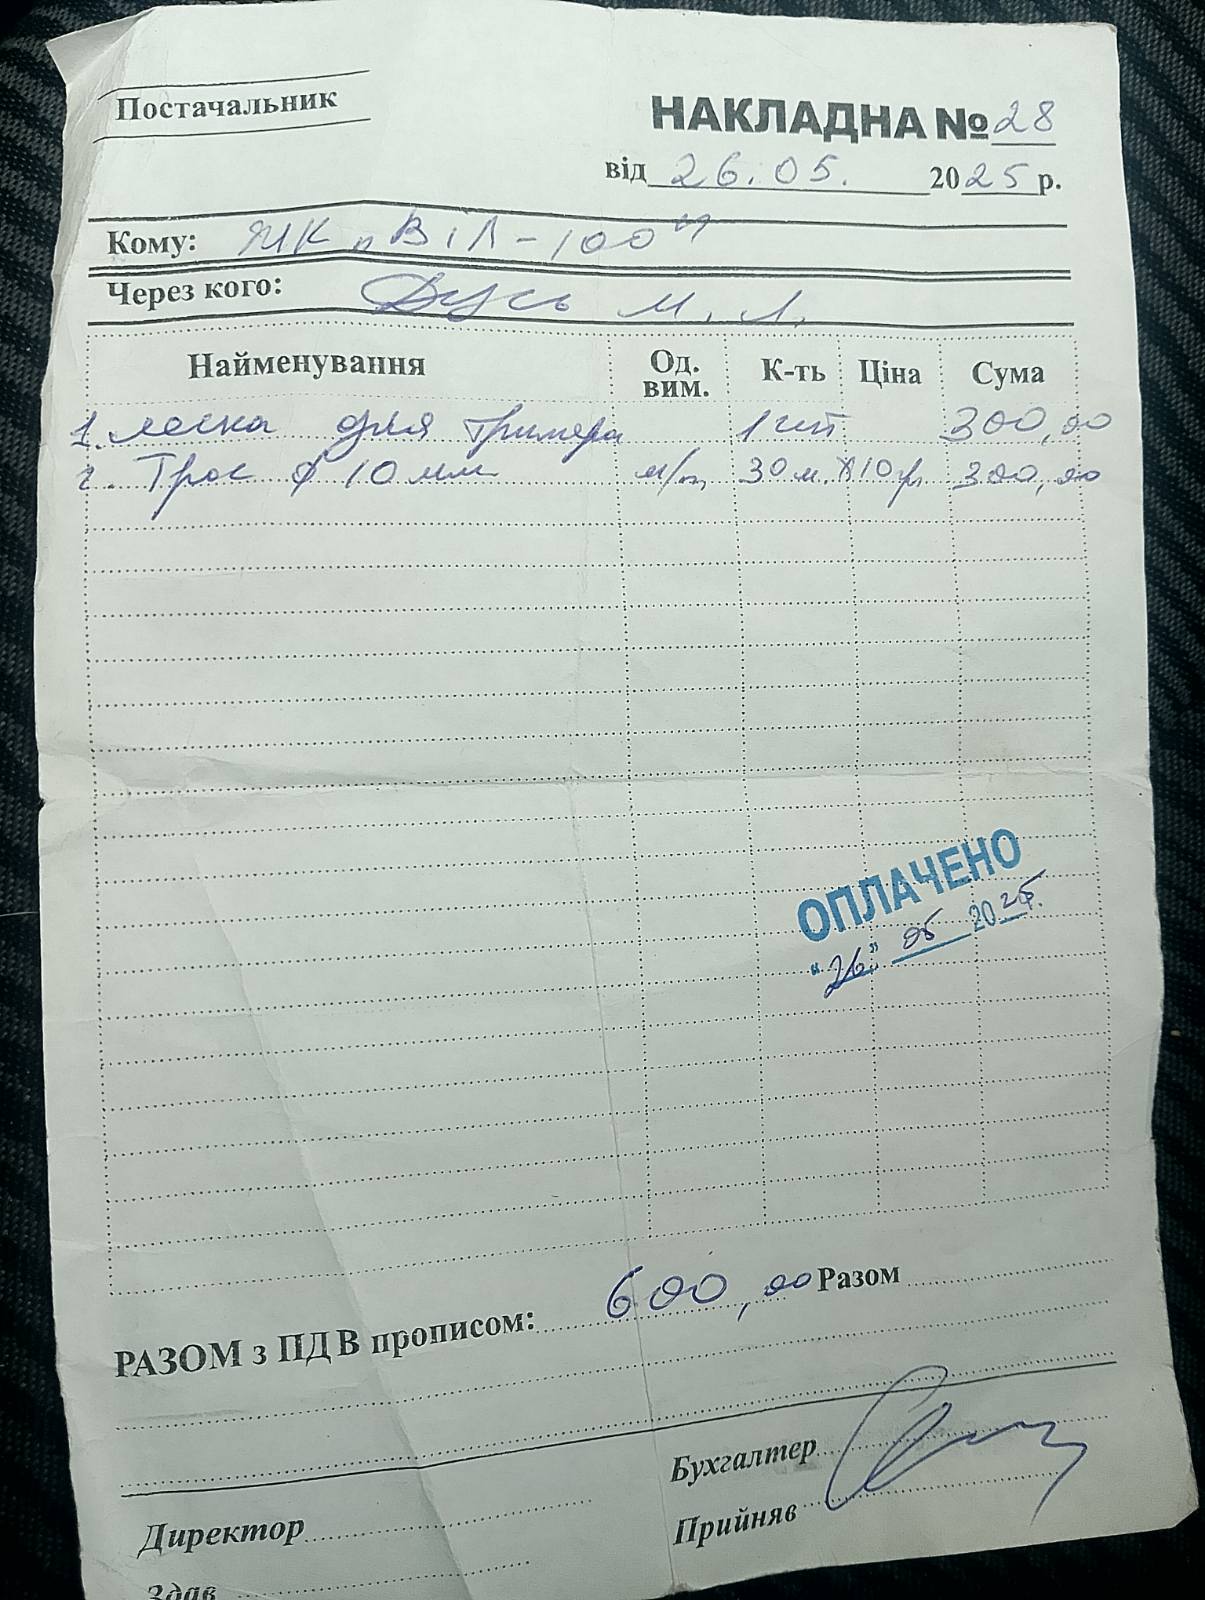 Постачальник
НАКЛАДНА № 28
від 26.05. 2025 р.
Кому: ЯМК "ВіЛ-100"
Через кого: Дусь М. Л.
Найменування Од. вим. К-ть Ціна Сума
1. леска для тримера 1 шт 300,00
2. Трос ф 10 мм м/п 30 м. х 10 гр 300,00
ОПЛАЧЕНО
"26" 05 2025.
РАЗОМ з ПДВ прописом: 600,00 Разом
Бухгалтер
Директор
Прийняв
Здав